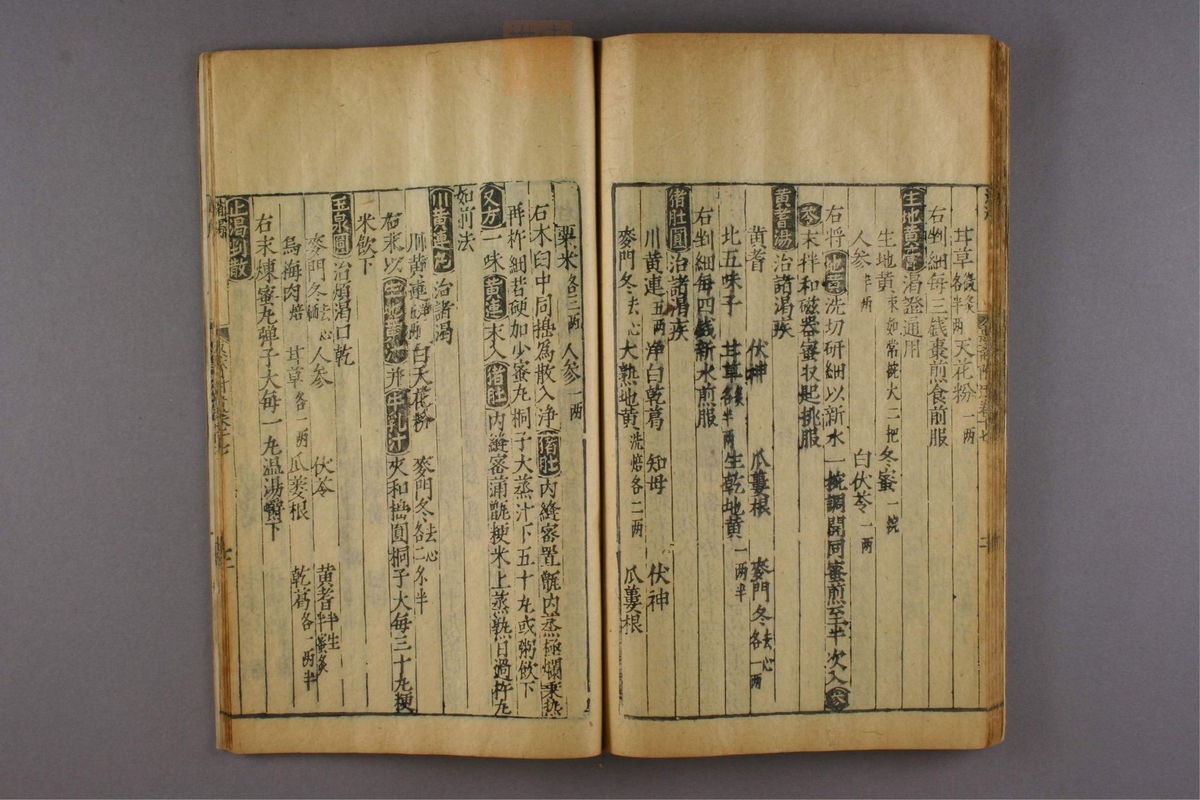 甘草各半两天花粉一两
右剉細每三銭棗煎食前服
生地黄膏渇證通用
生地黄束如常椀大二把冬蜜一椀
人参半两白伏苓一两
右将地黄洗切研細以新水一椀調開同蜜煎至半次入参
苓末拌和磁器蜜収匙挑服
黄耆湯治諸渇疾
黄耆伏神瓜蔞根麥門冬去心各一两
北五味子甘草炙各半两生乾地黄一两半
右剉細每四銭新水煎服
猪肚圓治諸渇疾
川黄連五两净白乾葛知母伏神
麥門冬去心大熟地黄洗焙各二两瓜蔞根
粟米各三两人参一两
右木臼中同搗為散入浄猪肚内縫密置甑内蒸極爛乗熱
再杵細若硬加少蜜丸桐子大蒸汁下五十丸或粥飲下
又方一味黄連末入猪肚内縫密蒲甑粳米上蒸熟日過杵丸
如前法
川黄連丸治諸渇
川黄連五两净白天花粉麥門冬去心各二分半
右末以生地黄汁并牛乳汁夾和搗圓桐子大每三十丸粳
米飲下
玉泉圓治煩渇口乾
麥門冬去心晒人参伏苓黄耆半生半蜜炙
烏梅肉焙甘草各一两瓜蔞根乾葛各一两半
右末煉蜜丸弾子大每一丸温湯嚼下
止渇剉散